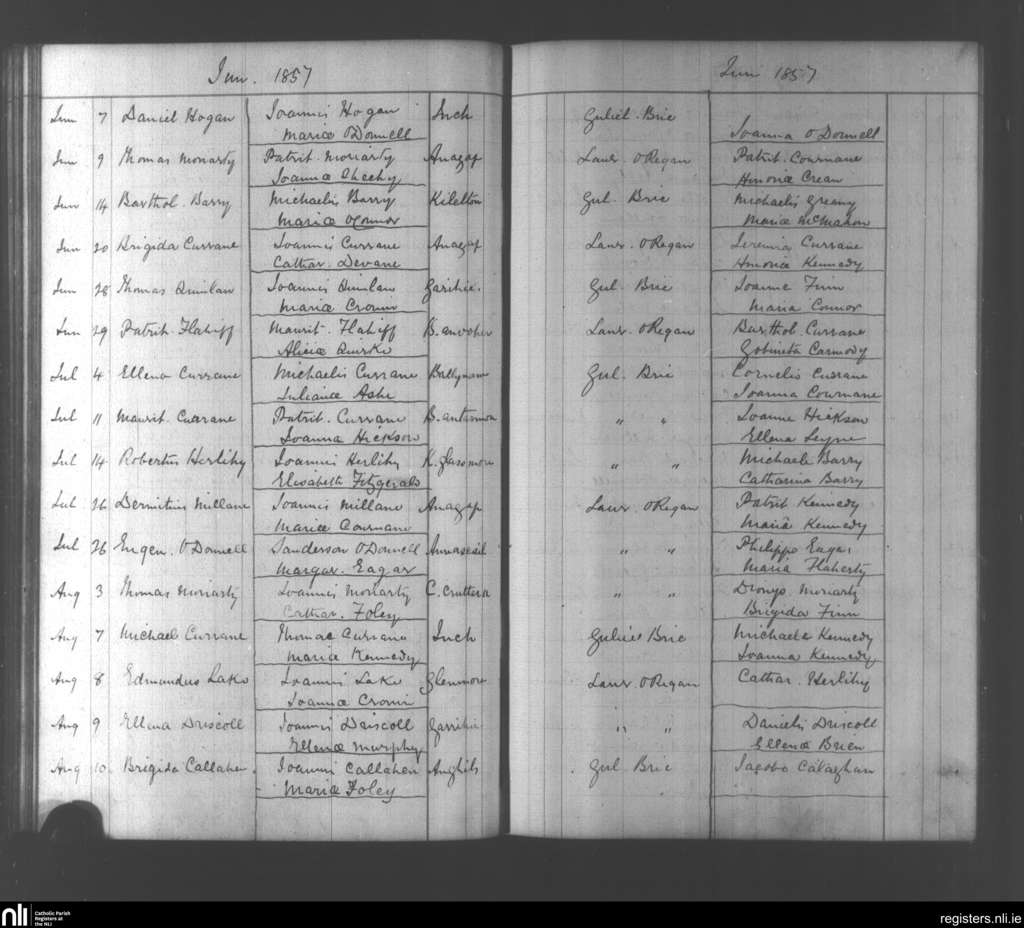 Jun. 1857
Jun 7 Daniel Hogan Joannis Hogan Inch
Mariæ O'Donnell
Jun 9 Thomas Moriarty Patrit. Moriarty Anagap
Joanna Sheehy
Jun 14 Barthol. Barry Michaelis Barry Kiletton
Mariæ O'Connor
Jun 20 Brigida Currane Joannis Currane Anagap
Cathar. Devane
Jun 28 Thomas Quinlan Joannis Quinlan
Mariæ Cronin
Jun 29 Patrit. Flahiff Maurit. Flahiff
Aliciæ Quirke
Jul 4 Ellena Currane Michaelis Currane
Julianæ Ashe
Jul 11 Maurit. Currane Patrit. Currane
Joanna Hickson
Jul 14 Robertus Herlihy Joannis Herlihy K. glassmore
Elisabeth Fitzgerald
Jul 26 Dermitius Millane Joannis Millane Anagap
Mariæ Cournane
Jul 26 Eugen. O'Donnell Sanderson O'Donnell
Margar. Eagar
Aug 3 Thomas Moriarty Joannis Moriarty
Cathar. Foley
Aug 7 Michael Currane Thomae Currane Inch
Mariæ Kennedy
Aug 8 Edmundus Lake Joannis Lake Glenmore
Joannæ Cronin
Aug 9 Ellena Driscoll Joannis Driscoll
Ellenæ Murphy
Aug 10 Brigida Callahen Joannis Callahen
Mariæ Foley
Jun 1857
Guliel. Brie
Joanna O'Donnell
Laur. O'Regan Patrit. Cournane
Honoriæ Crean
Gul. Brie Michaelis Greany
Mariæ McMahon
Laur. O'Regan Jeremia Currane
Honoriæ Kennedy
Gul. Brie Joanne Finn
Maria Connor
Laur. O'Regan Barthol. Currane
Gobineta Carmody
Gul. Brie Cornelio Currane
Joanna Cournane
" " Joanne Hickson
Ellena Leyne
" " Michaele Barry
Catharina Barry
Laur. O'Regan Patrit. Kennedy
Maria Kennedy
" " Philippo Eagar
Maria Flaherty
" " Dionys. Moriarty
Brigida Finn
Brie Michaele Kennedy
Joanna Kennedy
Laur. O'Regan Cathar. Herlihy
" " Danielis Driscoll
Ellenæ Brien
Gul Brie Jagobo Calaghan
nli
Catholic Parish
Registers at
the NLI
registers.nli.ie